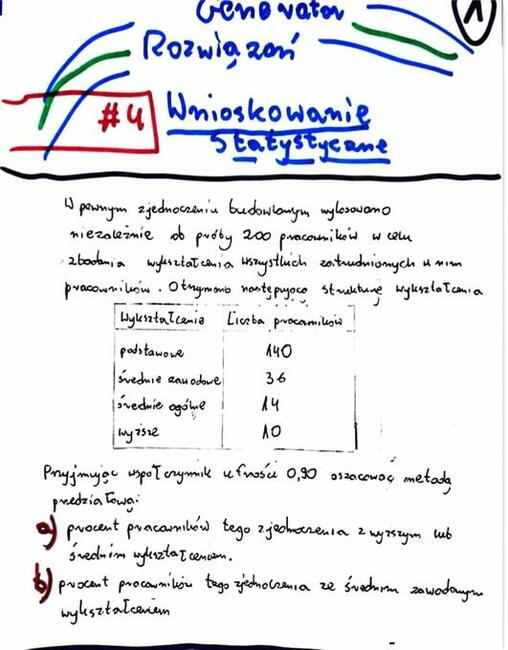 Generator
1
Rozwiązań
#4
Wnioskowanie
Statystyczne
W pewnym zjednoczeniu budowlanym wylosowano
niezależnie do próby 200 pracowników w celu
zbadania wykształcenia wszystkich zatrudnionych w nim
pracowników. Otrzymano następującą strukturę wykształcenia
Wykształcenie Liczba pracowników
podstawowe 140
średnie zawodowe 36
średnie ogólne 14
wyższe 10
Przyjmując współczynnik ufności 0,90 oszacować metodą
przedziałową:
a) procent pracowników tego zjednoczenia z wyższym lub
średnim wykształceniem.
b) procent pracowników tego zjednoczenia ze średnim zawodowym
wykształceniem